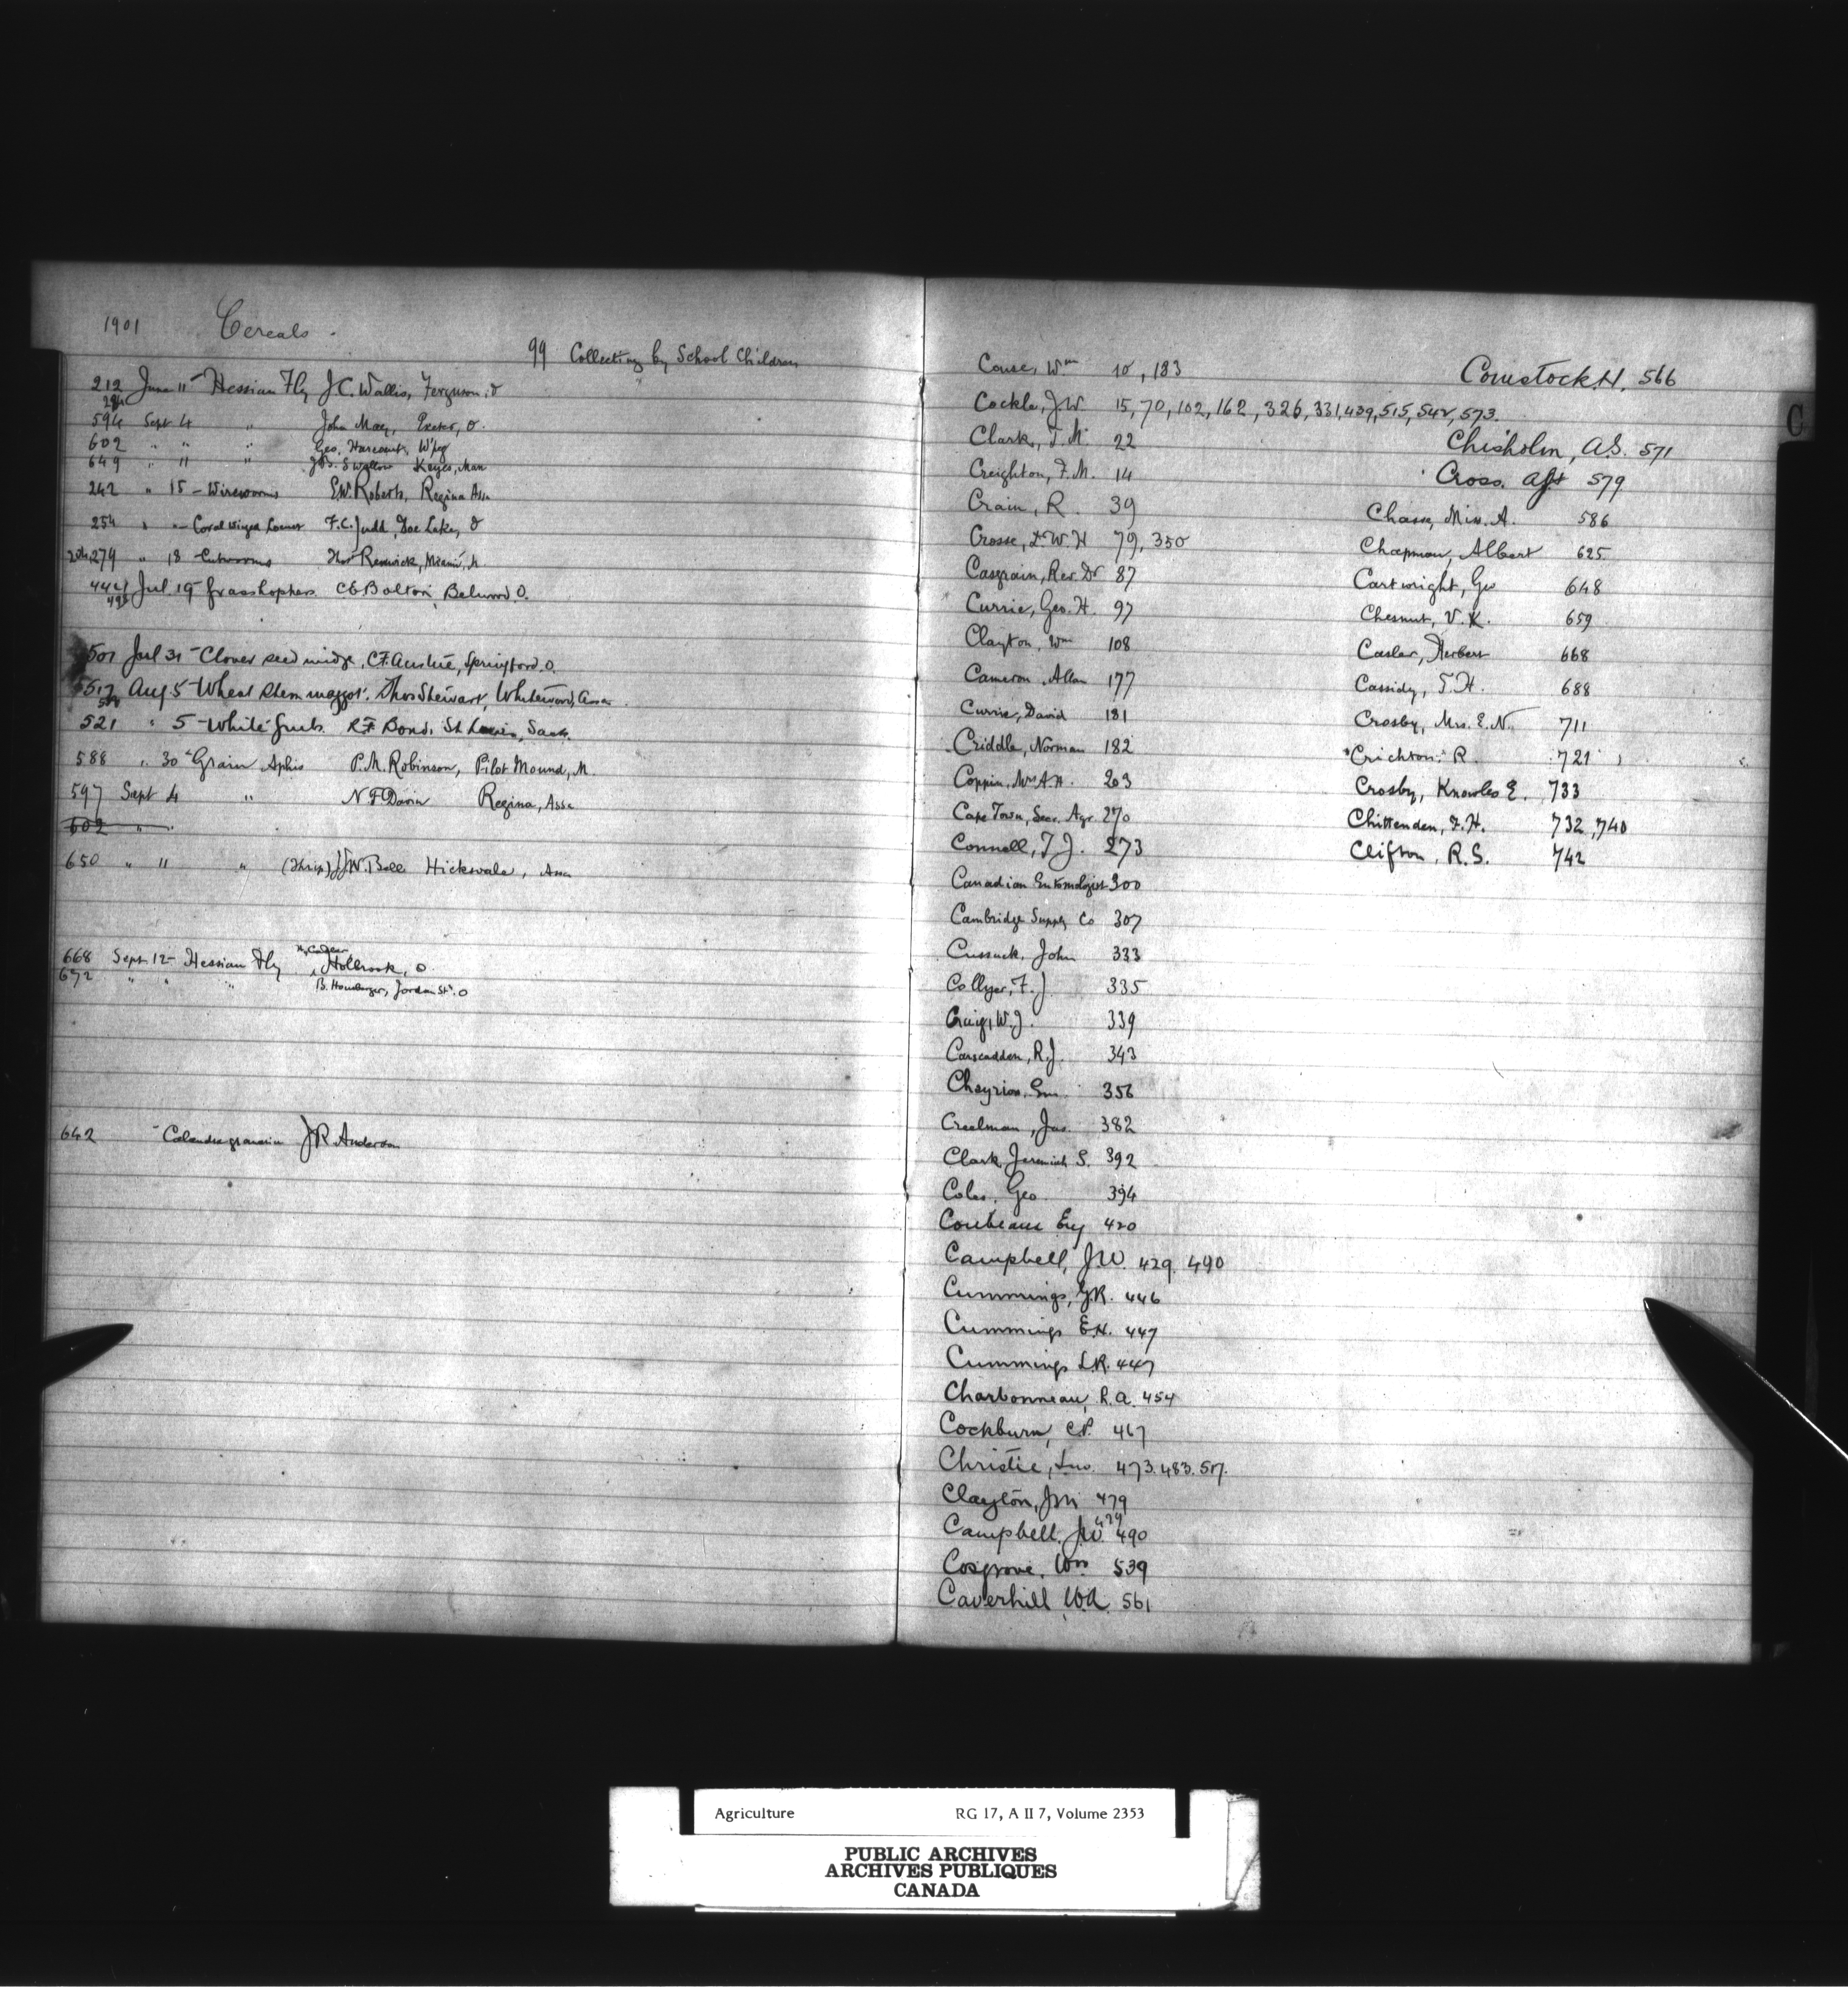 1901 Cereals.
99 Collecting by School Children
212 June 11 - Hessian Fly J.C. Wallis, Ferguson, O
594 Sept 4 " John May, Exeter, O.
602 " " " Geo. Harcourt, W'peg
649 " 11 " Swallow Keyes, Man
242 " 15 - Wireworms E.W. Roberts, Regina Assa
254 " " - Coral winged Locust F.C. Judd, Doe Lake, O
279 " 18 - Cutworms Thos Renwick, Miami, M
442 Jul. 19 Grasshoppers. C.E. Bolton, Belwood O.
495
501 Jul 31 - Clover seed midge, C.F. Austie, Springford O.
517 Aug. 5 - Wheat stem maggot. Thos Stewart, Whitewood, Assa.
521 " 5 - White Grub. R.F. Bond, St Louis, Sask.
588 " 30 - Grain Aphis P.M. Robinson, Pilot Mound, M.
597 Sept 4 " N F Davin Regina, Assa
602 "
650 " 11 " (Thrip) J.W. Bell Hicksvale, Assa
668 Sept 12 - Hessian Fly Holbrook, O.
672 " " " B. Honsberger, Jordan Stn. O
642 - Calandra granaria J.R. Anderson
C
Couse, Wm 10, 183
Cockle, J.W. 15, 70, 102, 162, 326, 331, 439, 515, 542, 573.
Clark, J.M. 22
Creighton, F.M. 14
Crain, R. 39
Crosse, L.W.H 79, 350
Casgrain, Rev. Dr 87
Currie, Geo. H. 97
Clayton, Wm 108
Cameron, Allan 177
Currie, David 181
Criddle, Norman 182
Coppin, Mrs A.H. 203
Cape Town, Sec. Agr. 270
Connell, T.J. 273
Canadian Entomologist 300
Cambridge Supply Co 307
Cussack, John 333
Collyer, F.J. 335
Craig, W.J. 339
Carscadden, R.J. 343
Cheyrion, Em. 356
Creelman, Jas. 382
Clark, Jeremiah S. 392
Coles, Geo. 394
Coubeaux Eug 420
Campbell, J.W. 429. 490
Cummings, G.R. 446
Cummings E.H. 447
Cummings L.R. 447
Charbonneau, R.A. 454
Cockburn, C.P. 467
Christie, Jno. 473. 483. 517.
Clayton, J.M. 479
Campbell, J.W. 429 490
Cosgrove, Wm 539
Caverhill W.A. 561
Comstock, H. 566
Chisholm, A.S. 571
Cross, 579
Chase, Miss. A. 586
Chapman, Albert 625
Cartwright, Geo 648
Chesnut, V.K. 659
Casler, Herbert 668
Cassidy, T.H. 688
Crosby, Mrs. E.N. 711
Crichton, R. 721
Crosby, Knowles E. 733
Chittenden, F.H. 732, 740
Clifton, R.S. 742
Agriculture RG 17, A II 7, Volume 2353
PUBLIC ARCHIVES
ARCHIVES PUBLIQUES
CANADA